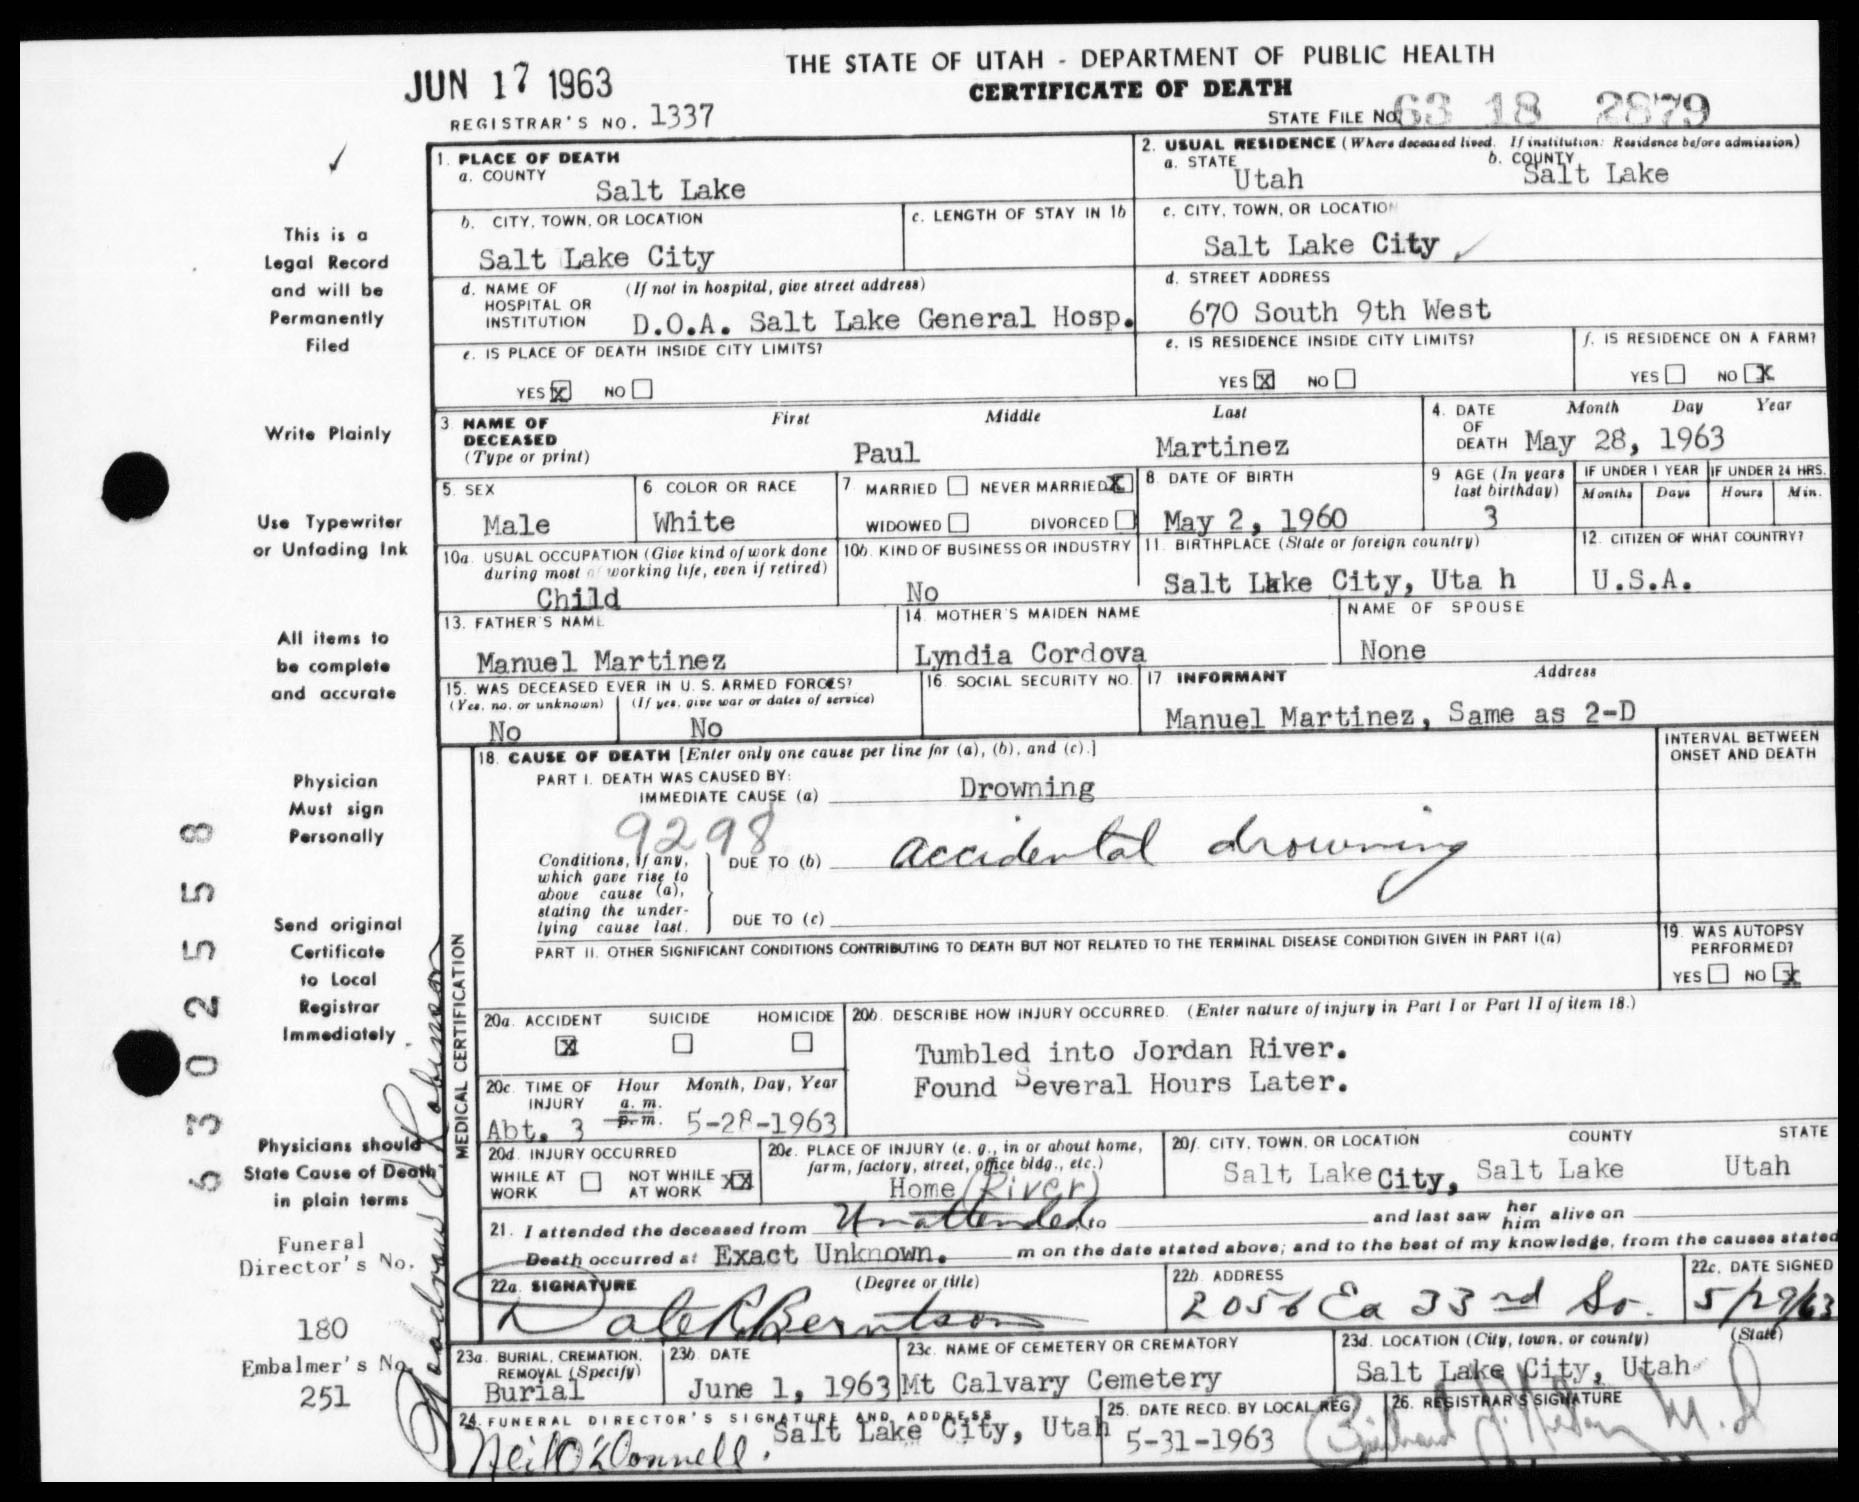 THE STATE OF UTAH - DEPARTMENT OF PUBLIC HEALTH
CERTIFICATE OF DEATH
JUN 17 1963
REGISTRAR'S NO. 1337
STATE FILE NO. 63 18 2879
1. PLACE OF DEATH
a. COUNTY
Salt Lake
2. USUAL RESIDENCE (Where deceased lived. If institution: Residence before admission)
a. STATE
Utah
b. COUNTY
Salt Lake
b. CITY, TOWN, OR LOCATION
Salt Lake City
c. LENGTH OF STAY IN 1b
c. CITY, TOWN, OR LOCATION
Salt Lake City
d. NAME OF HOSPITAL OR INSTITUTION
(If not in hospital, give street address)
D.O.A. Salt Lake General Hosp.
d. STREET ADDRESS
670 South 9th West
e. IS PLACE OF DEATH INSIDE CITY LIMITS?
YES X NO
e. IS RESIDENCE INSIDE CITY LIMITS?
YES X NO
f. IS RESIDENCE ON A FARM?
YES NO X
3. NAME OF DECEASED
(Type or print)
First Middle Last
Paul Martinez
4. DATE OF DEATH
Month Day Year
May 28, 1963
5. SEX
Male
6 COLOR OR RACE
White
7 MARRIED NEVER MARRIED X
WIDOWED DIVORCED
8. DATE OF BIRTH
May 2, 1960
9 AGE (In years last birthday)
3
IF UNDER 1 YEAR
Months Days
IF UNDER 24 HRS.
Hours Min.
10a. USUAL OCCUPATION (Give kind of work done during most of working life, even if retired)
Child
10b. KIND OF BUSINESS OR INDUSTRY
No
11. BIRTHPLACE (State or foreign country)
Salt Lake City, Uta h
12. CITIZEN OF WHAT COUNTRY?
U.S.A.
13. FATHER'S NAME
Manuel Martinez
14. MOTHER'S MAIDEN NAME
Lyndia Cordova
NAME OF SPOUSE
None
15. WAS DECEASED EVER IN U. S. ARMED FORCES?
(Yes, no, or unknown) (If yes, give war or dates of service)
No No
16. SOCIAL SECURITY NO.
17 INFORMANT Address
Manuel Martinez, Same as 2-D
MEDICAL CERTIFICATION
18. CAUSE OF DEATH [Enter only one cause per line for (a), (b), and (c).]
PART I. DEATH WAS CAUSED BY:
IMMEDIATE CAUSE (a) Drowning
9298
Conditions, if any, which gave rise to above cause (a), stating the underlying cause last.
DUE TO (b) accidental drowning
DUE TO (c)
INTERVAL BETWEEN ONSET AND DEATH
PART II. OTHER SIGNIFICANT CONDITIONS CONTRIBUTING TO DEATH BUT NOT RELATED TO THE TERMINAL DISEASE CONDITION GIVEN IN PART I(a)
19. WAS AUTOPSY PERFORMED?
YES NO X
20a. ACCIDENT SUICIDE HOMICIDE
X
20b. DESCRIBE HOW INJURY OCCURRED. (Enter nature of injury in Part I or Part II of item 18.)
Tumbled into Jordan River.
Found Several Hours Later.
20c. TIME OF INJURY Hour Month, Day, Year
Abt. 3 a. m. p. m. 5-28-1963
20d. INJURY OCCURRED
WHILE AT WORK NOT WHILE AT WORK XX
20e. PLACE OF INJURY (e. g., in or about home, farm, factory, street, office bldg., etc.)
Home (River)
20f. CITY, TOWN, OR LOCATION COUNTY STATE
Salt Lake City, Salt Lake Utah
21. I attended the deceased from Unattended to and last saw her him alive on
Death occurred at Exact Unknown. m on the date stated above; and to the best of my knowledge, from the causes stated
22a. SIGNATURE (Degree or title)
Dale R. Berntson
22b. ADDRESS
2056 Ea 33rd So.
22c. DATE SIGNED
5/29/63
23a. BURIAL, CREMATION, REMOVAL (Specify)
Burial
23b. DATE
June 1, 1963
23c. NAME OF CEMETERY OR CREMATORY
Mt Calvary Cemetery
23d. LOCATION (City, town, or county) (State)
Salt Lake City, Utah
24. FUNERAL DIRECTOR'S SIGNATURE AND ADDRESS
Neil O'Donnell. Salt Lake City, Utah
25. DATE RECD. BY LOCAL REG.
5-31-1963
26. REGISTRAR'S SIGNATURE
M.D
This is a
Legal Record
and will be
Permanently
Filed
Write Plainly
Use Typewriter
or Unfading Ink
All items to
be complete
and accurate
Physician
Must sign
Personally
Send original
Certificate
to Local
Registrar
Immediately.
Physicians should
State Cause of Death
in plain terms
Funeral
Director's No.
180
Embalmer's No.
251
63025558
Robinson